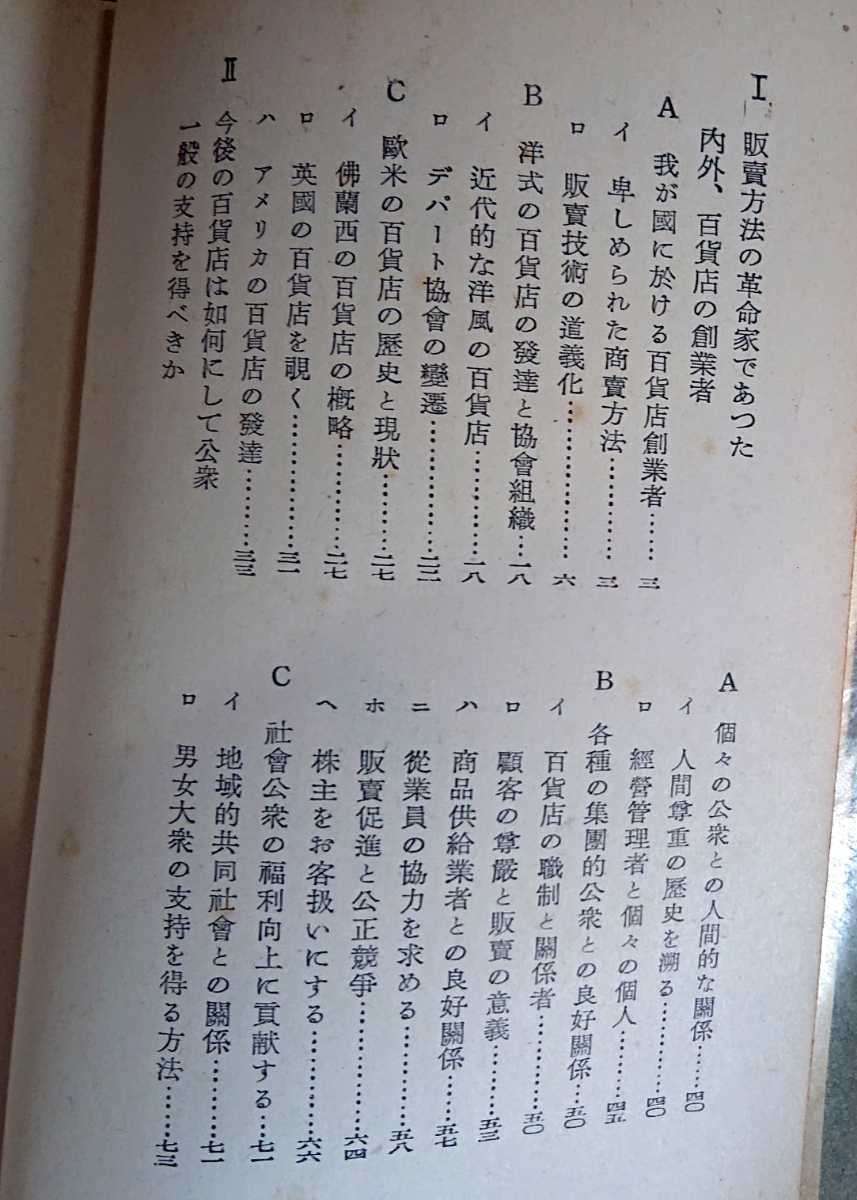 Ⅰ 販賣方法の革命家であつた
内外、百貨店の創業者
A 我が國に於ける百貨店創業者……三
イ 卑しめられた商賣方法…………三
ロ 販賣技術の道義化………………六
B 洋式の百貨店の發達と協會組織…一八
イ 近代的な洋風の百貨店…………一八
ロ デパート協會の變遷……………二二
C 歐米の百貨店の歷史と現狀………二七
イ 佛蘭西の百貨店の槪略…………二七
ロ 英國の百貨店を覗く……………三一
ハ アメリカの百貨店の發達………三三
Ⅱ 今後の百貨店は如何にして公衆
一般の支持を得べきか
A 個々の公衆との人間的な關係……四〇
イ 人間尊重の歷史を溯る…………四〇
ロ 經營管理者と個々の個人………四五
B 各種の集團的公衆との良好關係…五〇
イ 百貨店の職制と關係者…………五〇
ロ 顧客の尊嚴と販賣の意義………五三
ハ 商品供給業者との良好關係……五七
ニ 從業員の協力を求める…………五八
ホ 販賣促進と公正競爭……………六四
ヘ 株主をお客扱いにする…………六六
C 社會公衆の福利向上に貢献する…七一
イ 地域的共同社會との關係………七一
ロ 男女大衆の支持を得る方法……七三